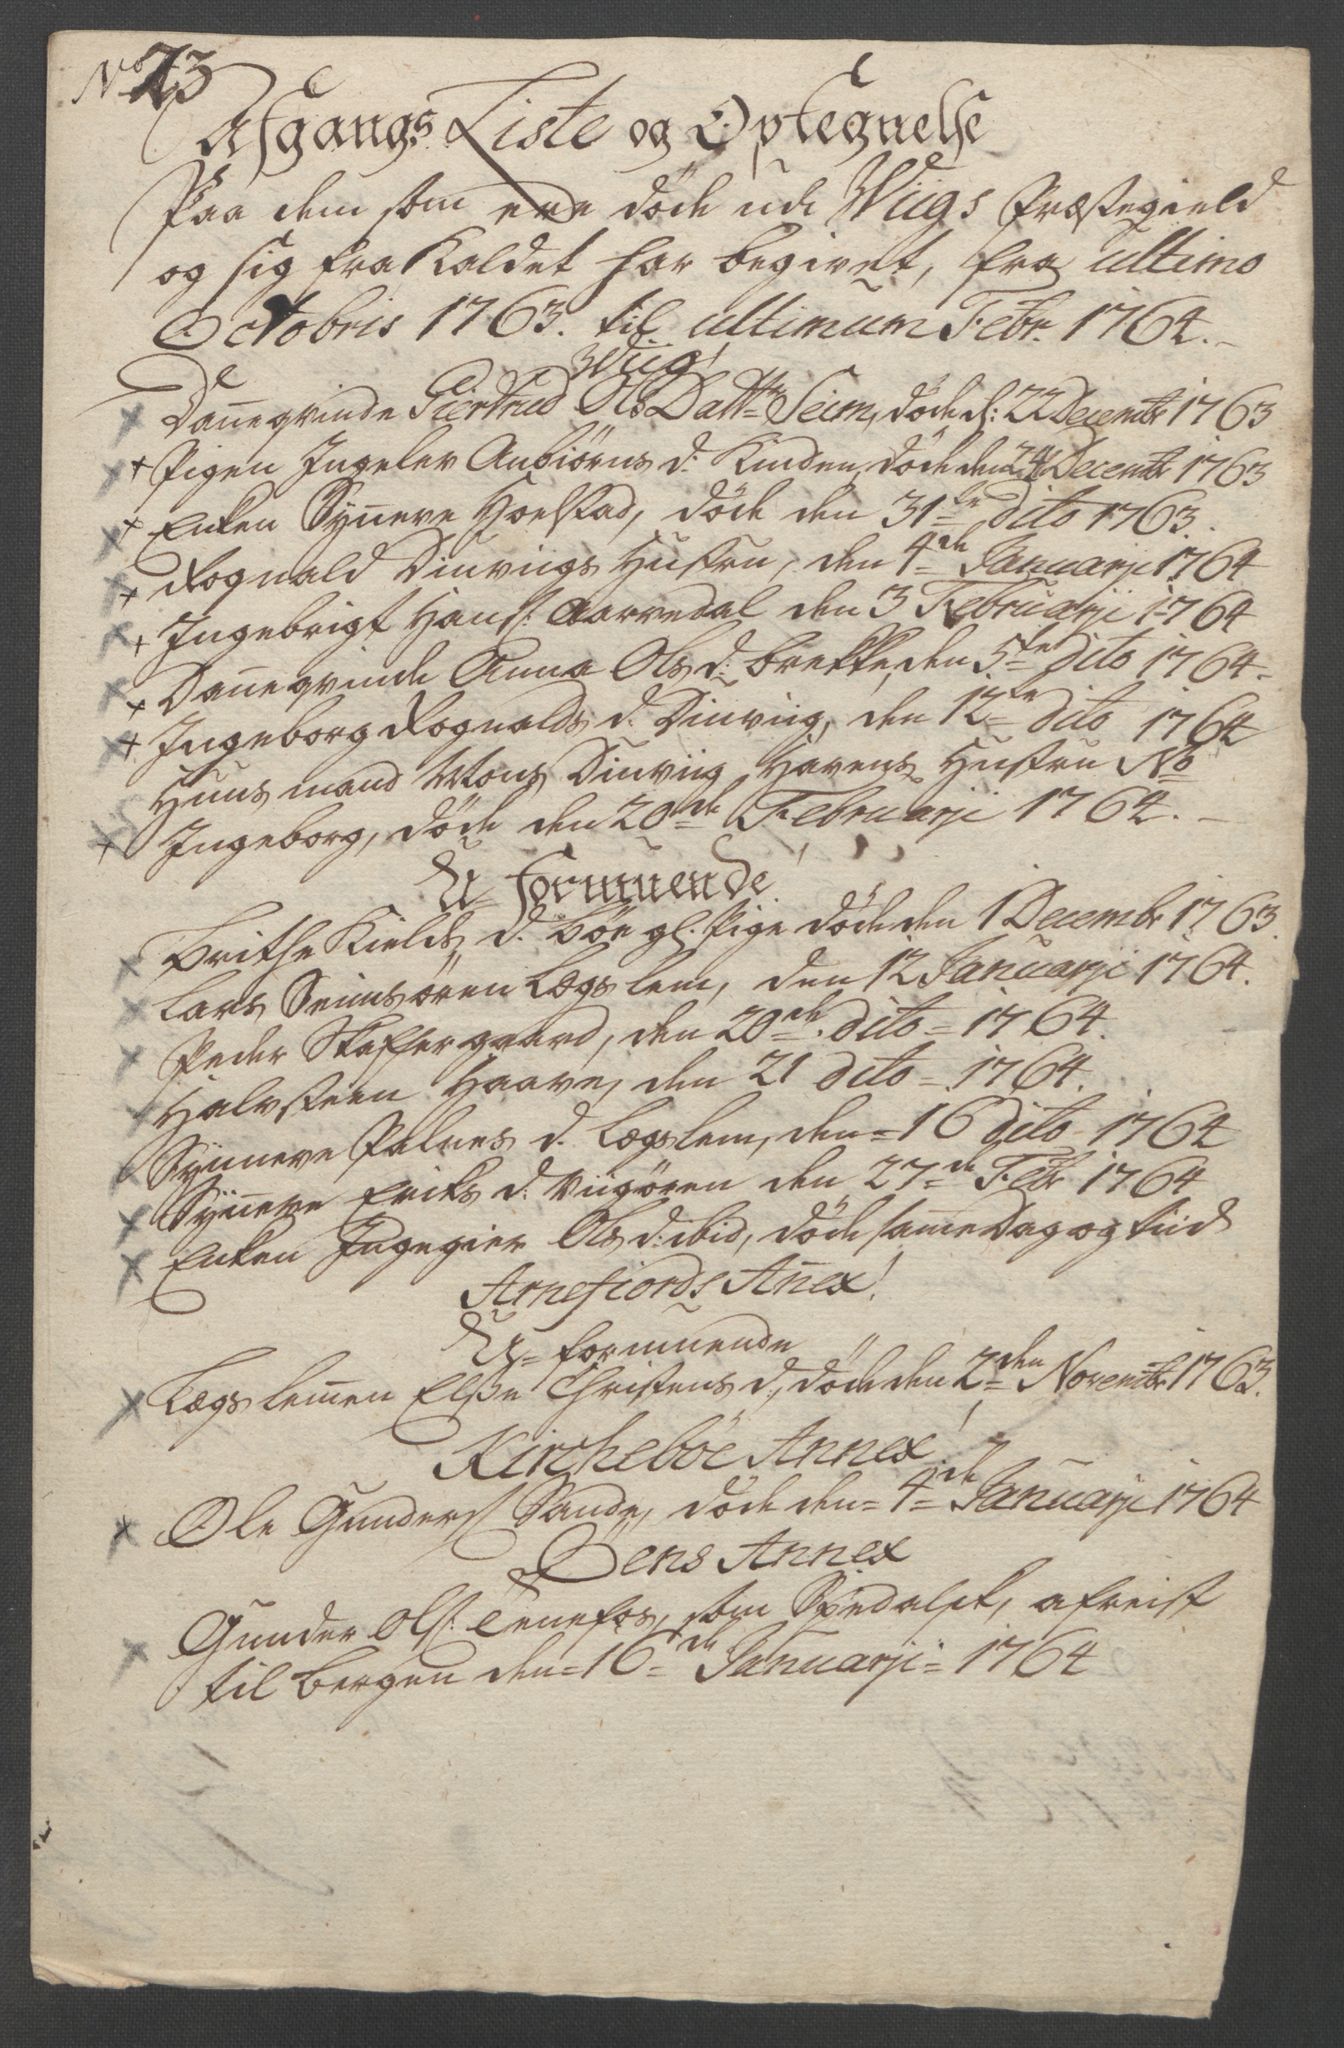 No 73
Afgangs Liste og Optegnelse
Paa dem som ere döde udi Wiigs Præstegield
og sig fra Kaldet har begivet, fra ultimo
Octobris 1763. til ultimum Febr. 1764.
Wiig
Dan̄eqvinde Giertrud Ols Datter Seim, döde d: 22 Decembr 1763
Pigen Ingelev Anbiörns d: Kinden, döde den 24 Decembr 1763
Enken Syn̄eve Hoelstad, döde den 31te dito 1763.
Rognald Dinviigs Hustru, den 4de Januarji 1764
Ingebrigt Hans: Aarvedal den 3 Februarji 1764
Dan̄eqvinde Anna Ols d: Brekke, den 5te dito 1764
Ingeborg Rognalds d: Dinviig, den 12te dito 1764
Huusmand Mons Dinviig Havens Hustru No
Ingeborg, döde den 20de Februarji 1764.
U-formuende
Brithe Kields d. Böe gl. Pige döde den 1 Decembr 1763.
Lars Seimsören Lægslem, den 12 Januarji 1764.
Peder Skaftergaard, den 20de dito = 1764.
Halvsteen Haave, den 21 dito = 1764.
Synneve Palnes d. Lægslem, den = 16 dito 1764
Syn̄eve Eriks d: Viigören den 27de Febr 1764
Enken Ingegier Ols d: ibid, döde sam̄e Dag og tiid
Arnefiords An̄ex!
U-formuende
Lægslem̄en Elsse Christens d., döde den 2den Novembr 1763.
Kircheböe Annex!
Ole Gunders: Sande, döde den = 4de Januarji 1764
Öens Annex
Gunder Ols: Tenefos, som Spedalsk, afreist
til Bergen den = 16de Januarji = 1764